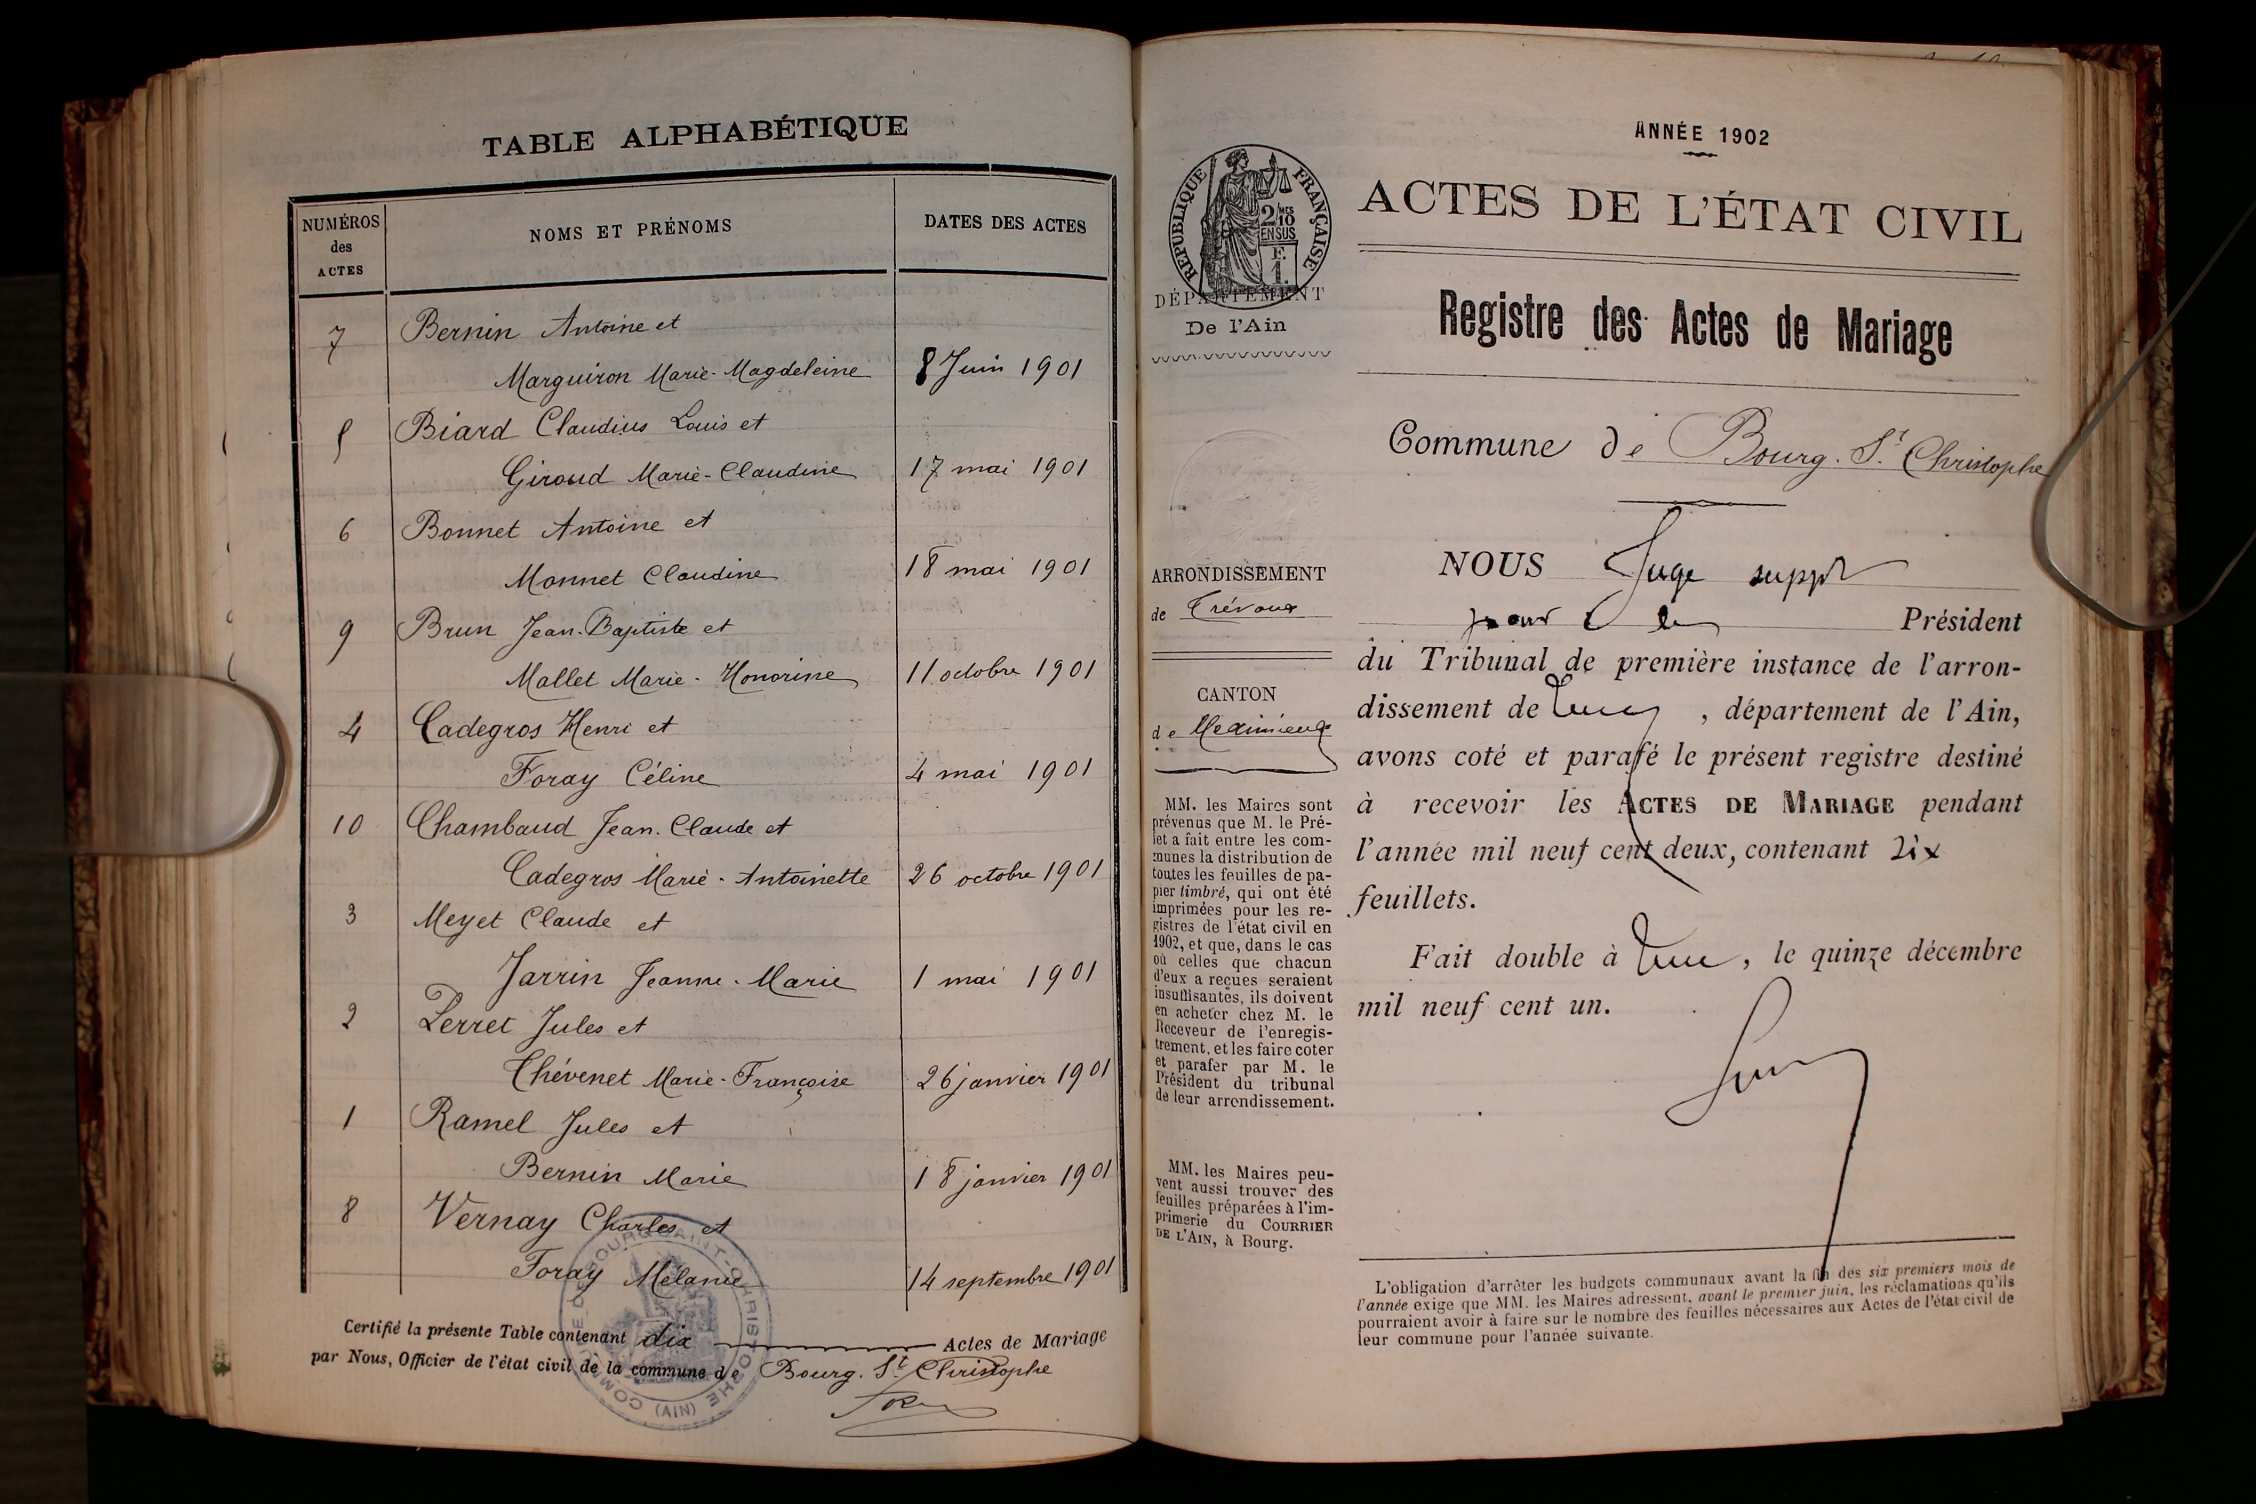 TABLE ALPHABÉTIQUE
NUMÉROS des ACTES
NOMS ET PRÉNOMS
DATES DES ACTES
7 Bernin Antoine et
Marguiron Marie-Magdeleine 8 Juin 1901
5 Biard Claudius Louis et
Giroud Marie-Claudine 17 mai 1901
6 Bonnet Antoine et
Monnet Claudine 18 mai 1901
9 Brun Jean-Baptiste et
Mallet Marie-Honorine 11 octobre 1901
4 Cadegros Henri et
Foray Céline 4 mai 1901
10 Chambaud Jean-Claude et
Cadegros Marie-Antoinette 26 octobre 1901
3 Meyet Claude et
Jarrin Jeanne-Marie 1 mai 1901
2 Perret Jules et
Chévenet Marie-Françoise 26 janvier 1901
1 Ramel Jules et
Bernin Marie 18 janvier 1901
8 Vernay Charles et
Foray Mélanie 14 septembre 1901
Certifié la présente Table contenant dix Actes de Mariage
par Nous, Officier de l'état civil de la commune de Bourg-St Christophe
COMMUNE DE BOURG SAINT-CHRISTOPHE (AIN)
RÉPUBLIQUE FRANÇAISE
2/10 MES
EN SUS
DÉPARTEMENT
De l'Ain
ARRONDISSEMENT
de Trévoux
CANTON
de Meximieux
MM. les Maires sont
prévenus que M. le Pré-
fet a fait entre les com-
munes la distribution de
toutes les feuilles de pa-
pier timbré, qui ont été
imprimées pour les re-
gistres de l'état civil en
1902, et que, dans le cas
où celles que chacun
d'eux a reçues seraient
insuffisantes, ils doivent
en acheter chez M. le
Receveur de l'enregis-
trement, et les faire coter
et parafer par M. le
Président du tribunal
de leur arrondissement.
MM. les Maires peu-
vent aussi trouver des
feuilles préparées à l'im-
primerie du COURRIER
DE L'AIN, à Bourg.
ANNÉE 1902
ACTES DE L'ÉTAT CIVIL
Registre des Actes de Mariage
Commune de Bourg-St Christophe
NOUS Juge suppt
pour le Président
du Tribunal de première instance de l'arron-
dissement de , département de l'Ain,
avons coté et parafé le présent registre destiné
à recevoir les ACTES DE MARIAGE pendant
l'année mil neuf cent deux, contenant dix
feuillets.
Fait double à , le quinze décembre
mil neuf cent un.
L'obligation d'arrêter les budgets communaux avant la fin des six premiers mois de
l'année exige que MM. les Maires adressent, avant le premier juin, les réclamations qu'ils
pourraient avoir à faire sur le nombre des feuilles nécessaires aux Actes de l'état civil de
leur commune pour l'année suivante.